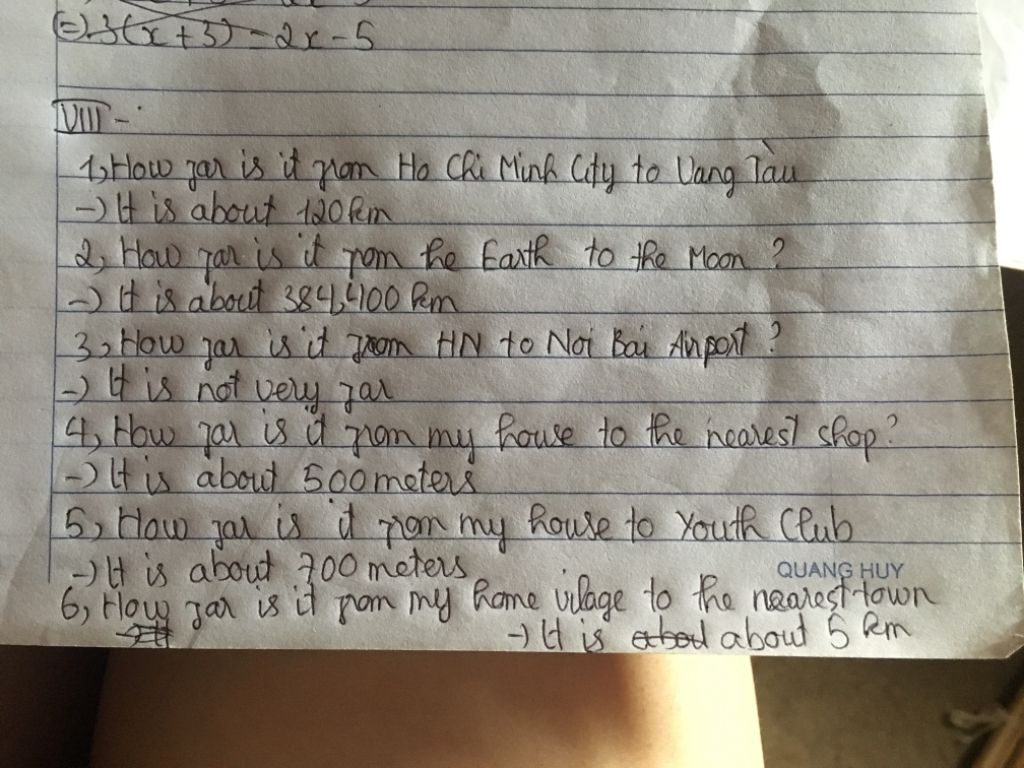 (=) 3(x+3) - 2x - 5
VIII -
1, How far is it from Ho Chi Minh City to Vang Tàu
-) It is about 120 km
2, How far is it from the Earth to the Moon ?
-) It is about 384,400 km
3, How far is it from HN to Noi Bai Airport ?
-) It is not very far
4, How far is it from my house to the nearest shop ?
-) It is about 500 meters
5, How far is it from my house to Youth Club
-) It is about 700 meters
QUANG HUY
6, How far is it from my home village to the nearest town
-) It is about 5 km